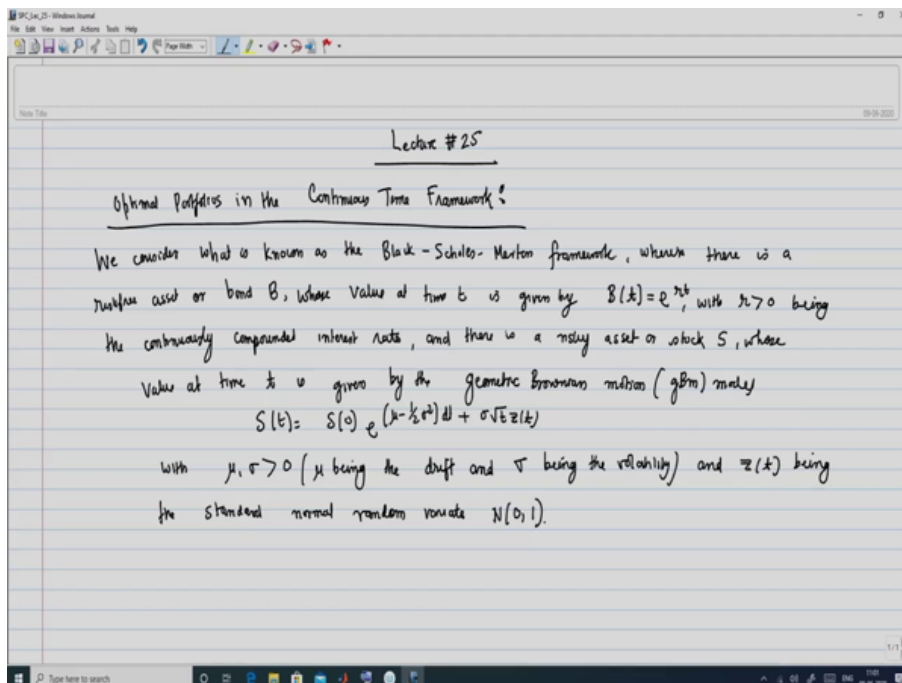 SPC_Lec_25 - Windows Journal
File Edit View Insert Actions Tools Help
Page Width
Note Title
09-06-2020
Lecture #25
Optimal Portfolios in the Continuous Time Framework :
We consider what is known as the Black - Scholes - Merton framework, wherein there is a
riskfree asset or bond B, whose value at time t is given by B(t) = e^{rt}, with r>0 being
the continuously compounded interest rate, and there is a risky asset or stock S, whose
value at time t is given by the geometric Brownian motion (gBm) model
S(t) = S(0) e^{(μ-½σ²)dt + σ√t z(t)}
with μ, σ>0 (μ being the drift and σ being the volatility) and z(t) being
the standard normal random variate N(0,1).
1/1
Type here to search
ENG
11:01